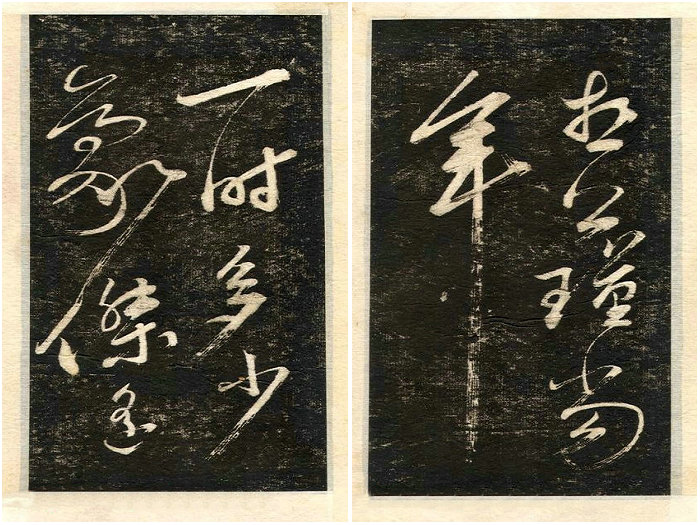 一时多少
豪傑遙
想公瑾當
年